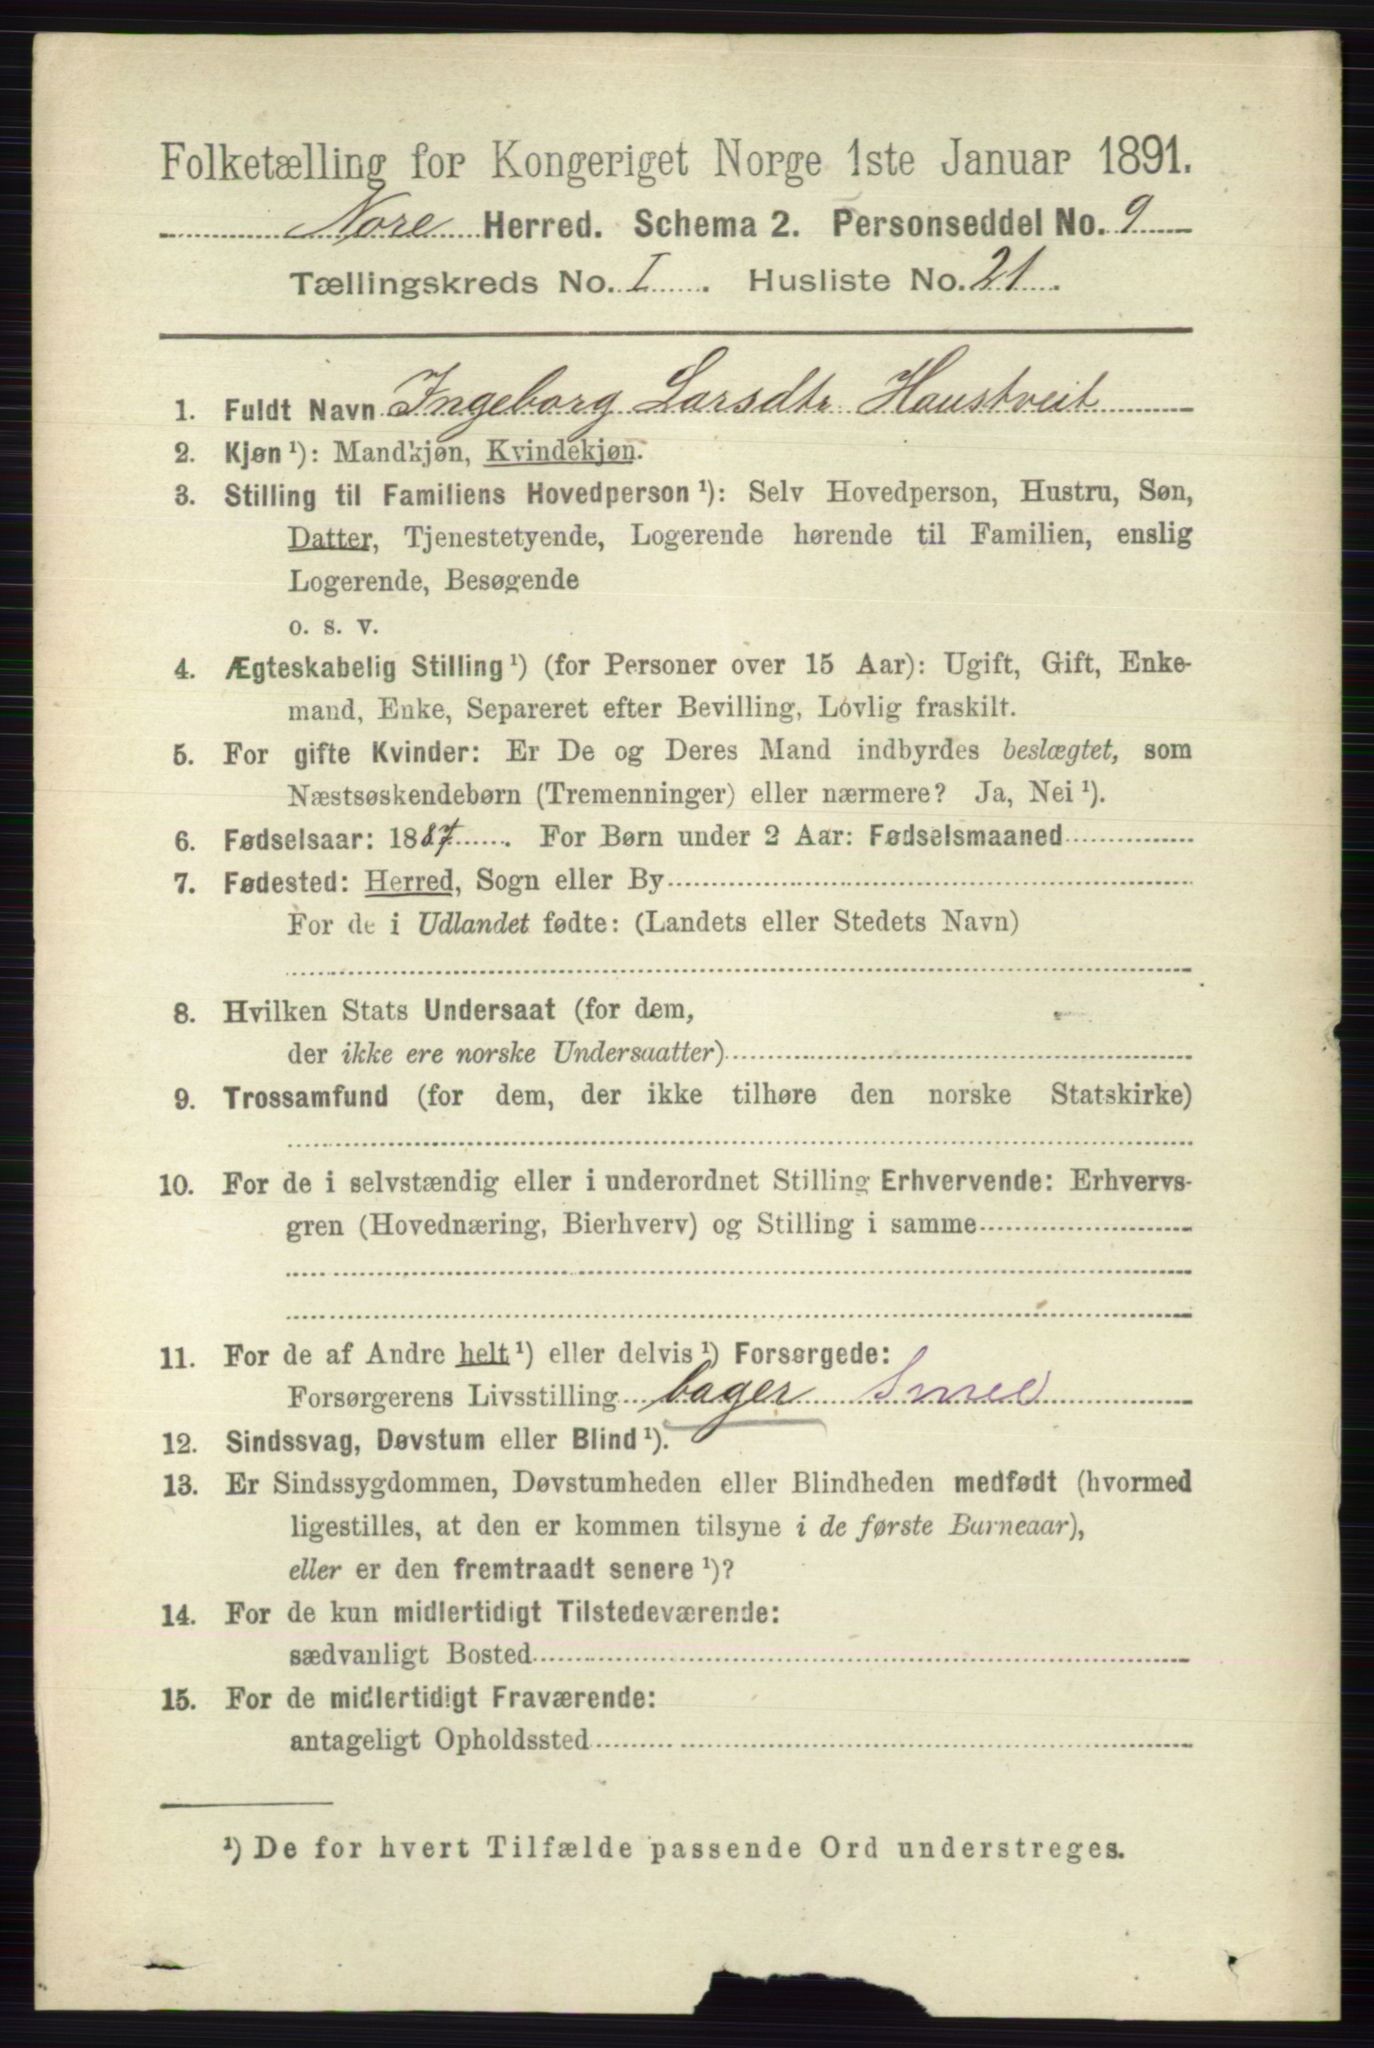 Folketælling for Kongeriget Norge 1ste Januar 1891.
Nore Herred. Schema 2. Personseddel No. 9
Tællingskreds No. I. Husliste No. 21.
1. Fuldt Navn Ingeborg Larsdtr. Haustveit
2. Kjøn ¹): Mandkjøn, Kvindekjøn.
3. Stilling til Familiens Hovedperson ¹): Selv Hovedperson, Hustru, Søn,
Datter, Tjenestetyende, Logerende hørende til Familien, enslig
Logerende, Besøgende
o. s. v.
4. Ægteskabelig Stilling ¹) (for Personer over 15 Aar): Ugift, Gift, Enke-
mand, Enke, Separeret efter Bevilling, Lovlig fraskilt.
5. For gifte Kvinder: Er De og Deres Mand indbyrdes beslægtet, som
Næstsøskendebørn (Tremenninger) eller nærmere? Ja, Nei ¹).
6. Fødselsaar: 1887. For Børn under 2 Aar: Fødselsmaaned
7. Fødested: Herred, Sogn eller By
For de i Udlandet fødte: (Landets eller Stedets Navn)
8. Hvilken Stats Undersaat (for dem,
der ikke ere norske Undersaatter)
9. Trossamfund (for dem, der ikke tilhøre den norske Statskirke)
10. For de i selvstændig eller i underordnet Stilling Erhvervende: Erhvervs-
gren (Hovednæring, Bierhverv) og Stilling i samme
11. For de af Andre helt ¹) eller delvis ¹) Forsørgede:
Forsørgerens Livsstilling bager
12. Sindssvag, Døvstum eller Blind ¹).
13. Er Sindssygdommen, Døvstumheden eller Blindheden medfødt (hvormed
ligestilles, at den er kommen tilsyne i de første Barneaar),
eller er den fremtraadt senere ¹)?
14. For de kun midlertidigt Tilstedeværende:
sædvanligt Bosted
15. For de midlertidigt Fraværende:
antageligt Opholdssted
¹) De for hvert Tilfælde passende Ord understreges.